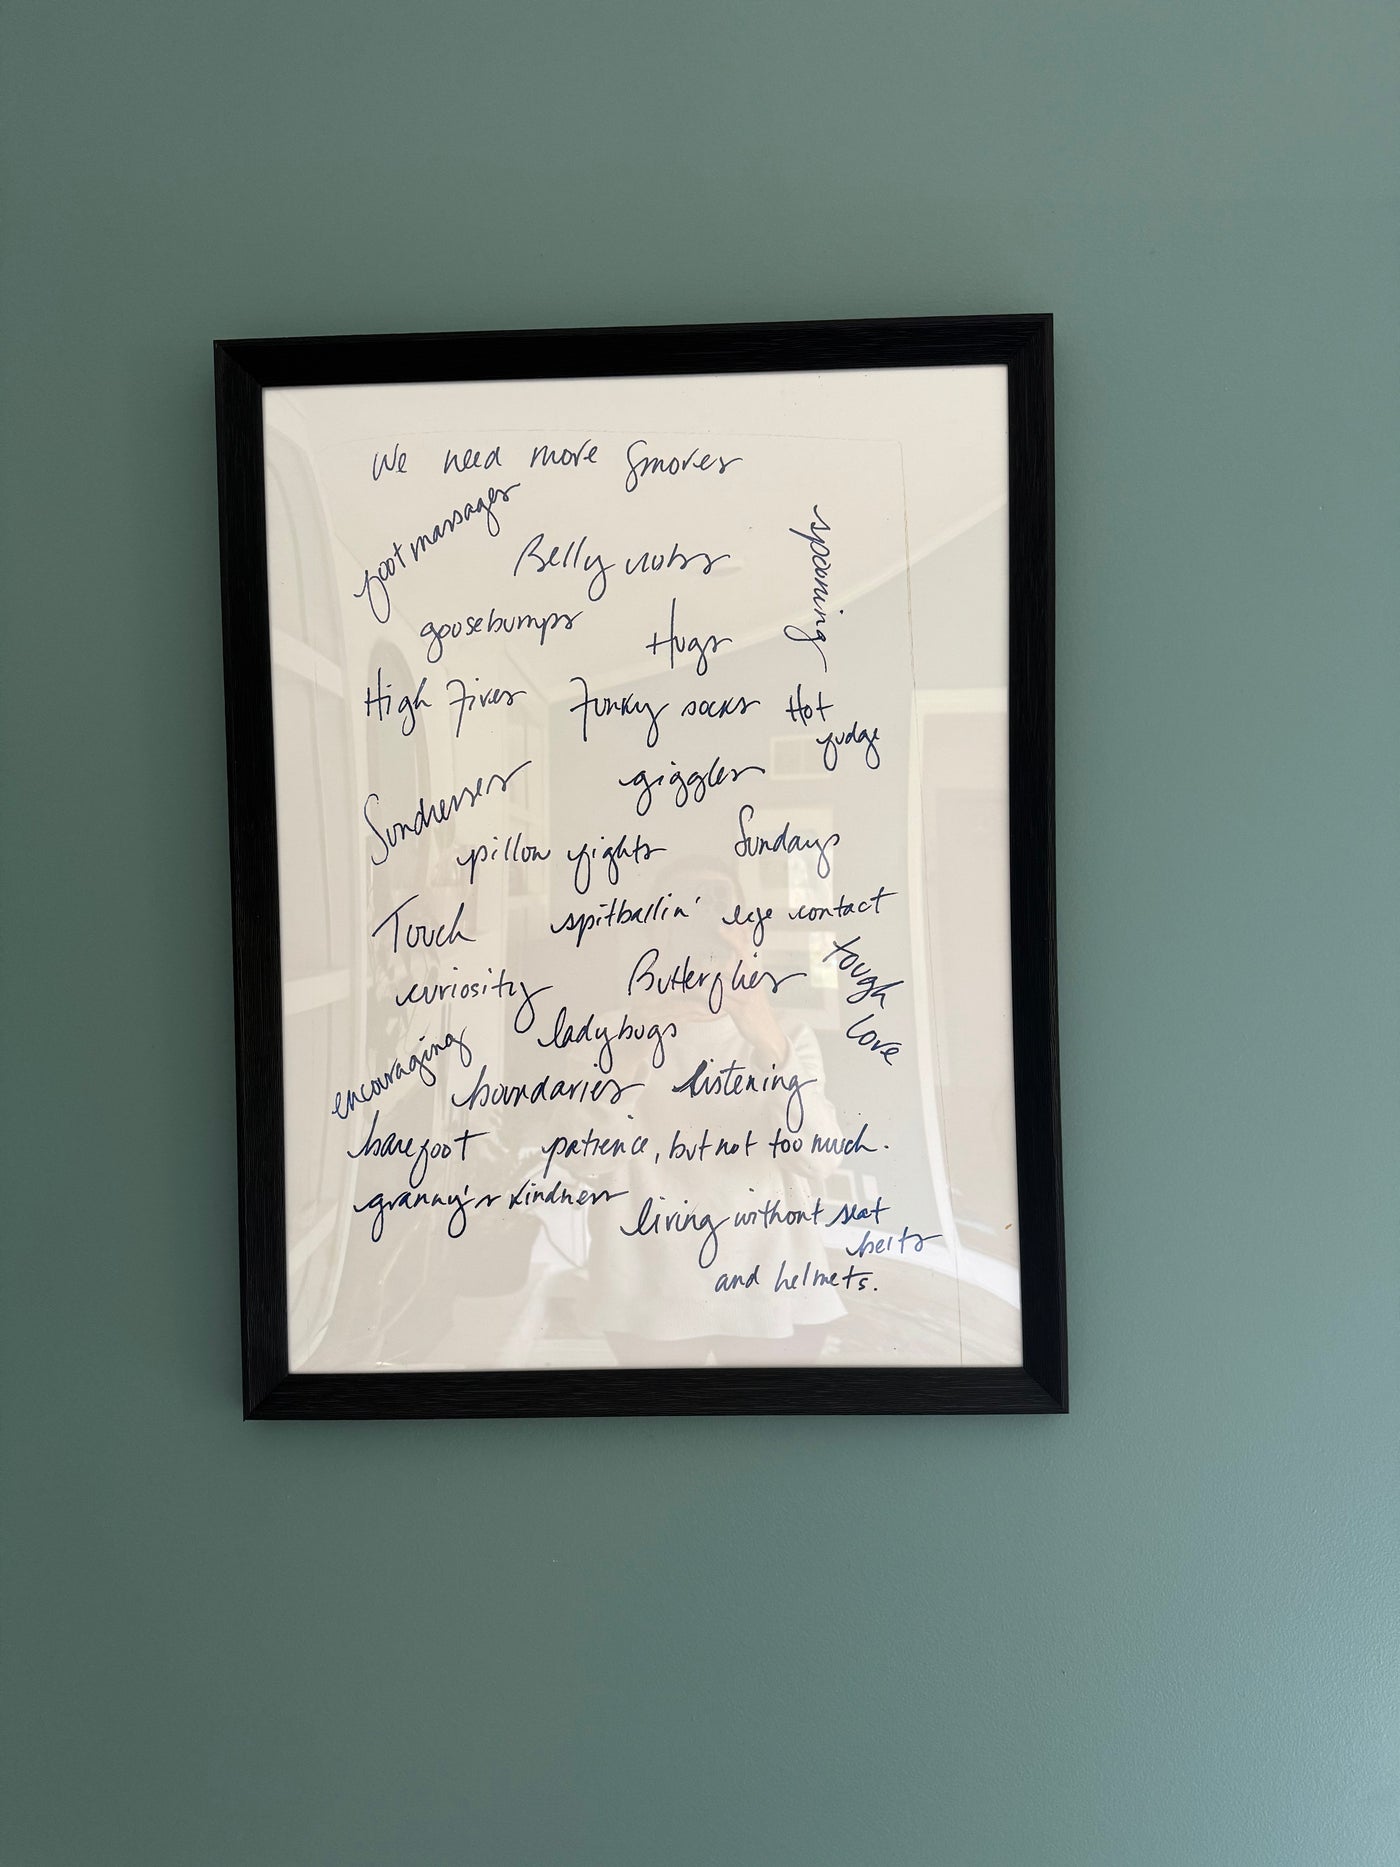 We need more Smores
foot massages
Belly rubs
spooning
goosebumps
Hugs
High Fives
Funky socks
Hot
fudge
Sundresses
giggles
pillow fights
Sundays
Touch
spitballin'
eye contact
curiosity
Butterflies
tough
love
ladybugs
encouraging
boundaries
listening
barefoot
patience, but not too much.
granny's kindness
living without seat
belts
and helmets.